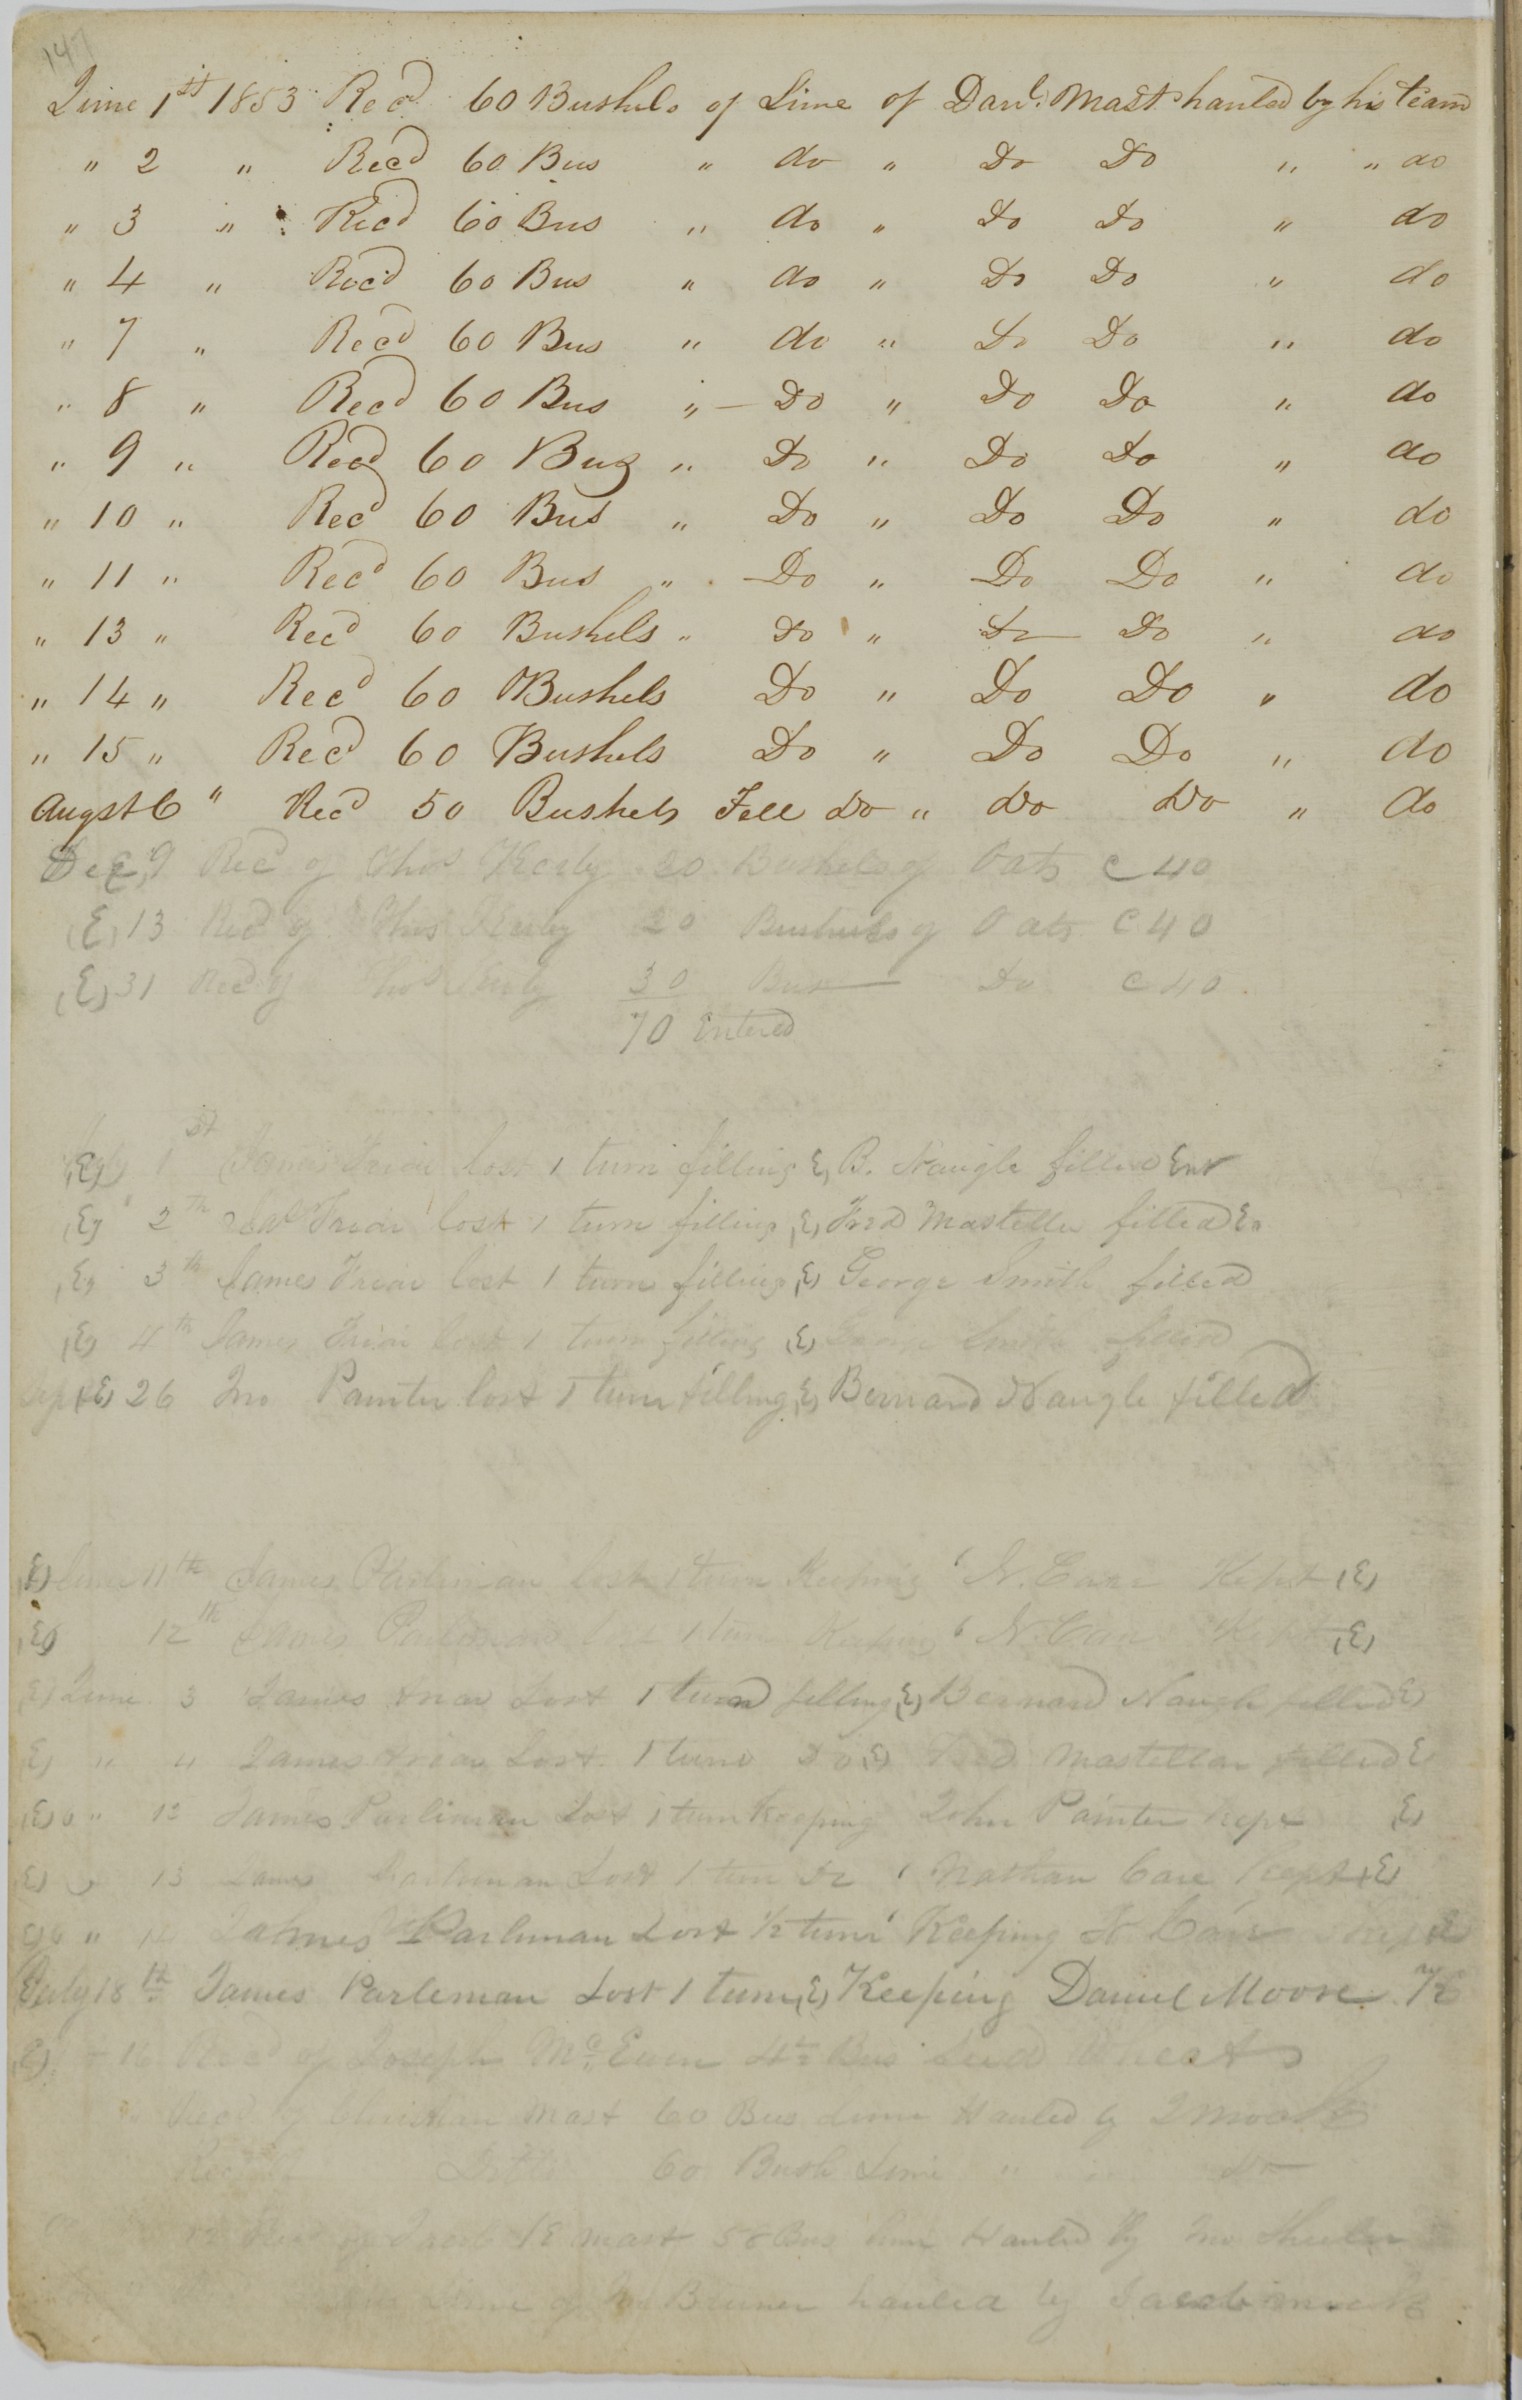 147
June 1st 1853 Recd 60 Bushels of Lime of Danl. Mast hauled by his team
" 2 " Recd 60 Bus " do " Do Do " " do
" 3 " Recd 60 Bus " do " Do Do " do
" 4 " Recd 60 Bus " do " Do Do " do
" 7 " Recd 60 Bus " do " Do Do " do
" 8 " Recd 60 Bus " Do " Do Do " do
" 9 " Recd 60 Bus " Do " Do Do " do
" 10 " Recd 60 Bus " Do " Do Do " do
" 11 " Recd 60 Bus " Do " Do Do " do
" 13 " Recd 60 Bushels " Do " Do Do " do
" 14 " Recd 60 Bushels Do " Do Do " do
" 15 " Recd 60 Bushels Do " Do Do " do
Augst 6 " Recd 50 Bushels Fell Do " Do Do " Do
Dec 9 Recd of Thos 20 Bushels of Oats c 40
(E) 13 Recd of Thos 20 Bushels of Oats c 40
(E) 31 Recd of Thos 30 Bus Do c 40
70 Entered
(E) 1st James Friar lost 1 turn filling (E) B. Naugle filled Ent
(E) 2th Jas Friar lost 1 turn filling (E) Fred Mastellar filled
(E) 3th James Friar lost 1 turn filling (E) George Smith filled
(E) 4th James Friar lost 1 turn filling (E) George Smith filled
Sept (E) 26 Jno Painter lost 1 turn filling (E) Bernard Naugle filled
(E) June 11th James Parliman lost 1 turn Keeping N. Care Kept (E)
(E) 12th James Parliman lost 1 turn Keeping N. Care Kept (E)
(E) June 3 James Friar Lost 1 turn filling (E) Bernard Naugle filled (E)
(E) " 4 James Friar Lost 1 turn Do (E) Fred Mastellar filled (E)
(E) " 12 James Parliman Lost 1 turn Keeping John Painter kept (E)
(E) 13 James Parliman Lost 1 turn Do Nathan Care Kept (E)
" 14 James Parliman Lost 1/2 turn Keeping N Care
July 18th James Parleman Lost 1 turn (E) Keeping Daniel Moore K
(E) 16 Recd of Joseph Mc Ewen Bus Seed Wheat
Recd of Christian Mast 60 Bus Lime Hauled by
Ditto 60 Bush Lime " Do
of Jacob Mast 58 Bus Lime Hauled By Jno
Lime of hauled by Jacob